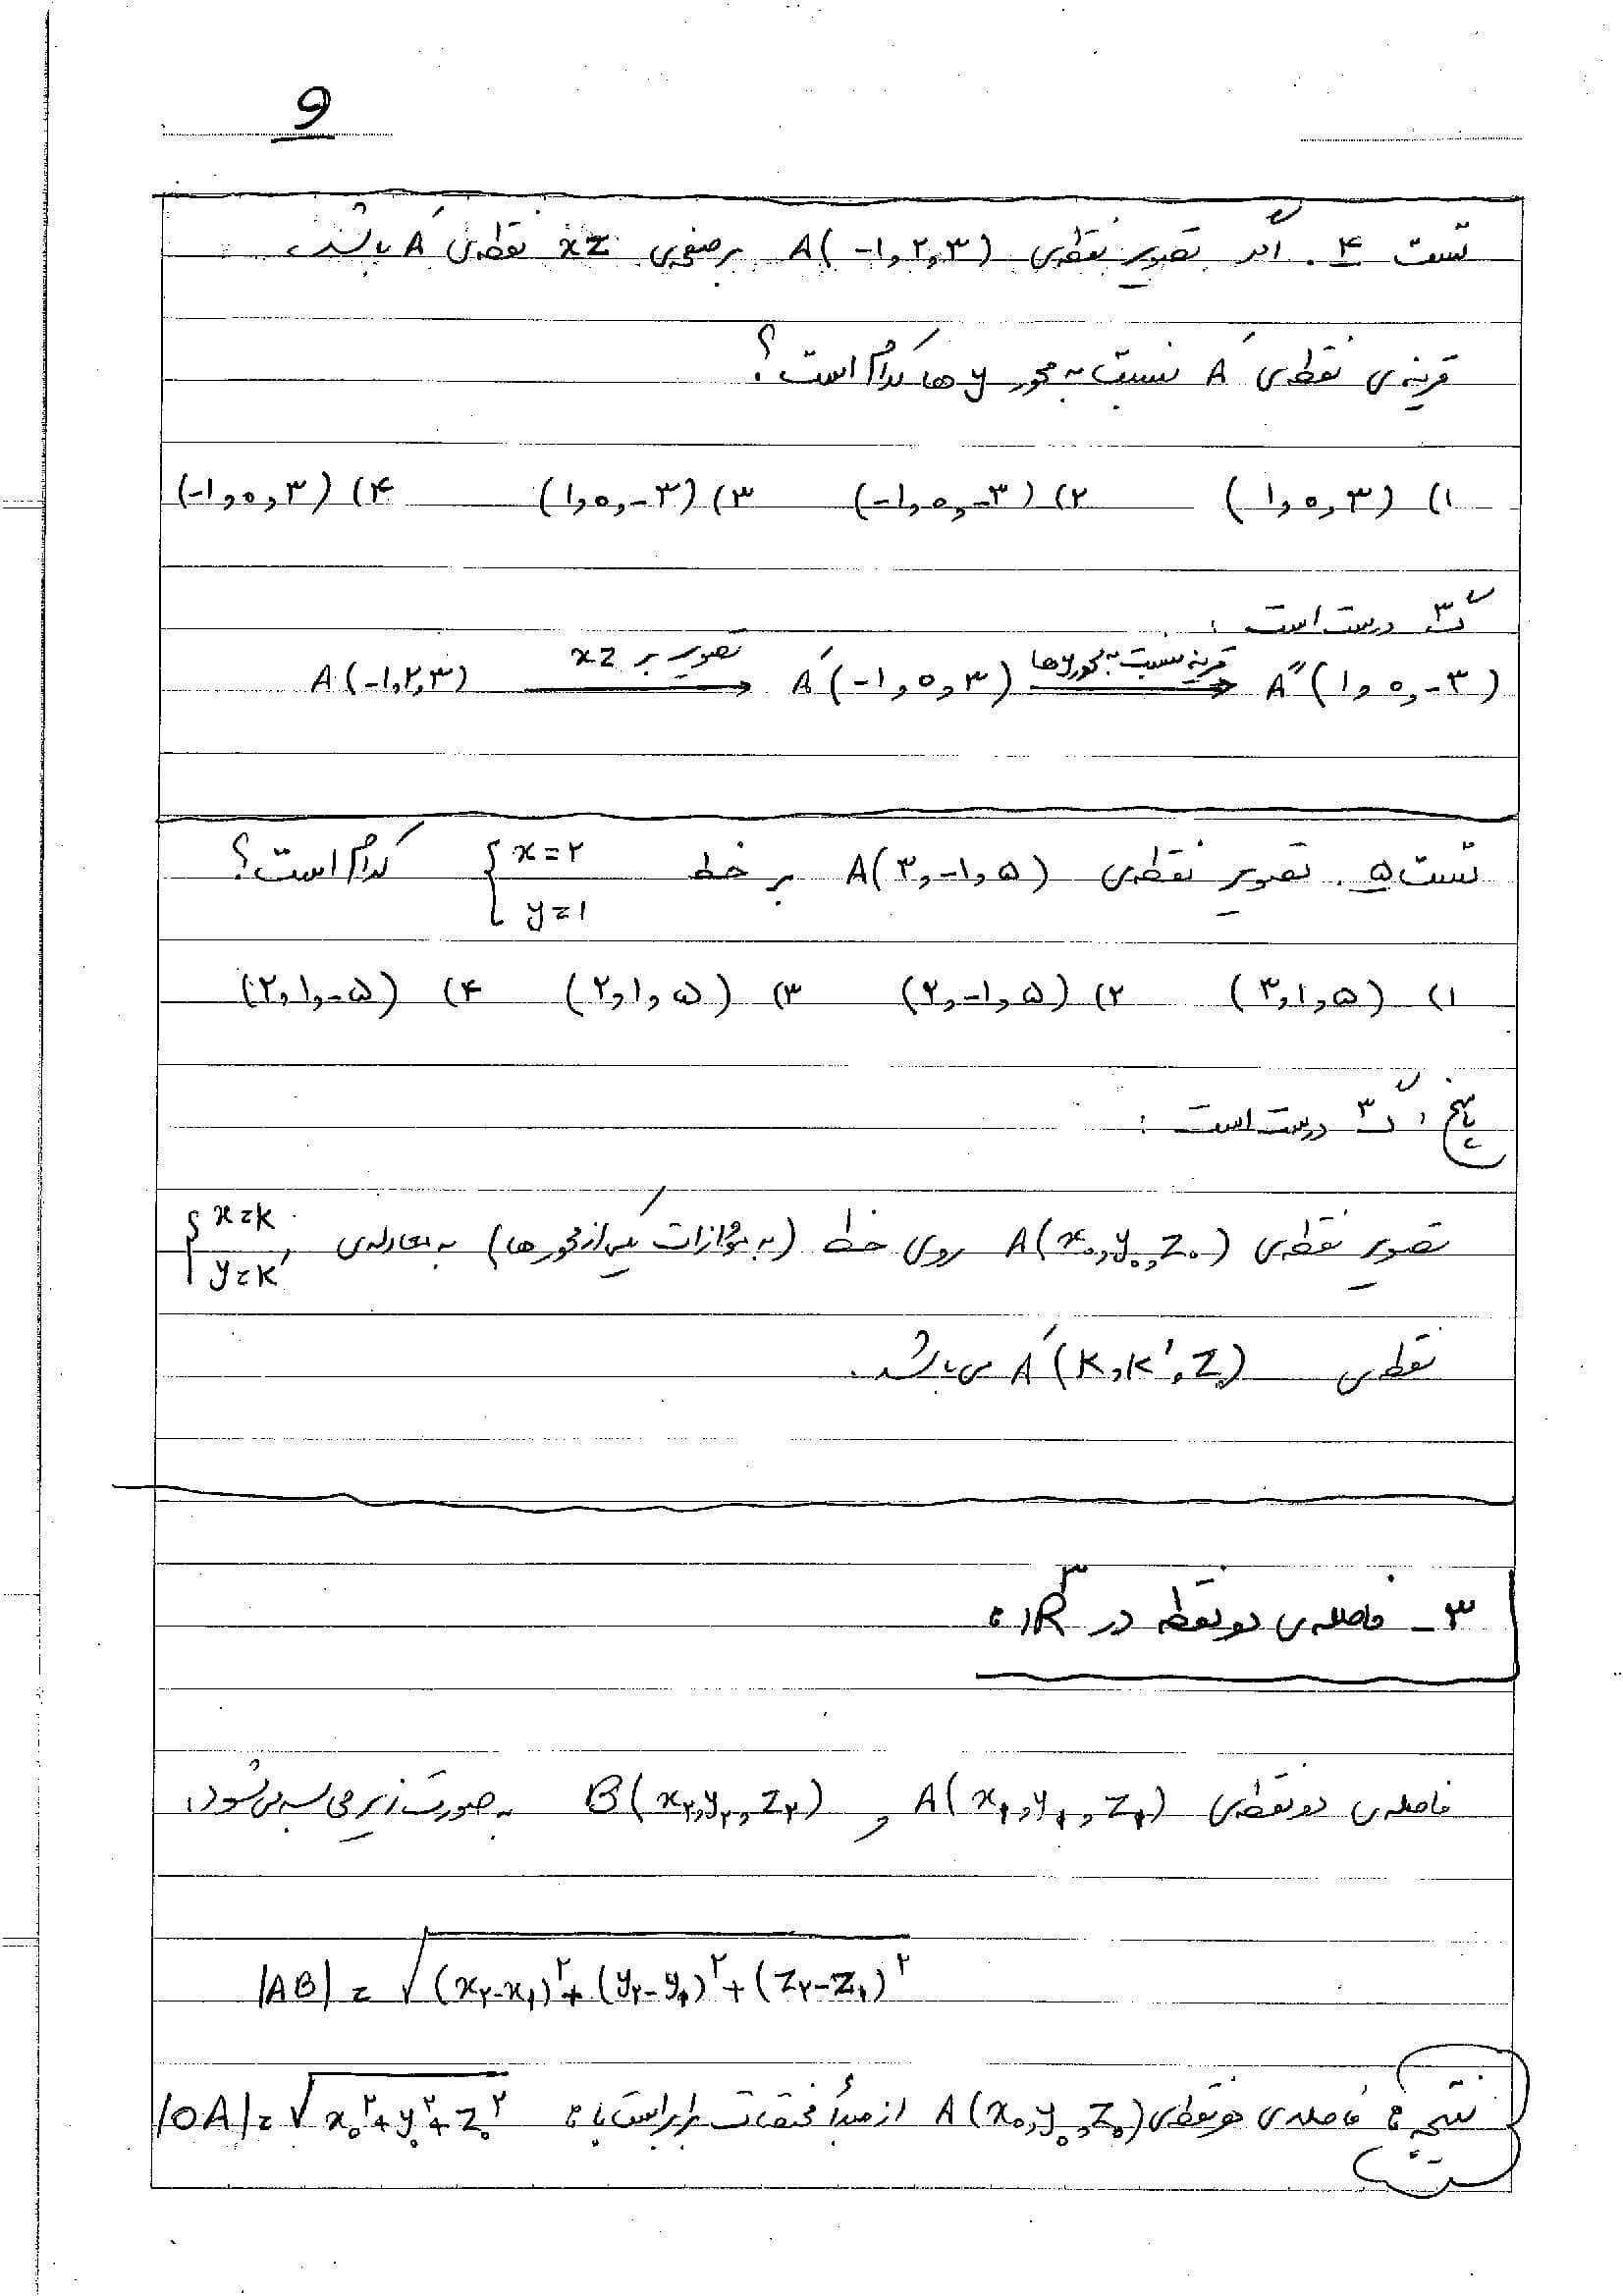 9
تست ۴. اگر تصویر نقطه‌ی A(-۱,۲,۳) بر صفحه‌ی xz نقطه‌ی A′ باشد،
قرینه‌ی نقطه‌ی A′ نسبت به محور y ها کدام است؟
۱) (۱,۰,۳) ۲) (-۱,۰,-۳) ۳) (۱,۰,-۳) ۴) (-۱,۰,۳)
گ ۳ درست است:
A(-۱,۲,۳) ⟶ تصویر بر xz A′(-۱,۰,۳) ⟶ قرینه نسبت به محور yها A″(۱,۰,-۳)
تست ۵. تصویر نقطه‌ی A(۳,-۱,۵) بر خط { x=۲ y=۱ کدام است؟
۱) (۳,۱,۵) ۲) (۲,-۱,۵) ۳) (۲,۱,۵) ۴) (۲,۱,-۵)
پاسخ: گ ۳ درست است:
تصویر نقطه‌ی A(x₀,y₀,z₀) روی خط (به موازات یکی از محورها) به معادله‌ی { x=k y=k′ ,
نقطه‌ی A′(k,k′,z₀) می‌باشد.
۳- فاصله‌ی دو نقطه در IR³:
فاصله‌ی دو نقطه‌ی A(x₁,y₁,z₁) و B(x₂,y₂,z₂) به صورت زیر محاسبه می‌شود:
|AB| = √(x₂-x₁)²+(y₂-y₁)²+(z₂-z₁)²
نتیجه: فاصله‌ی هر نقطه‌ی A(x₀,y₀,z₀) از مبدأ مختصات برابر است با: |OA|=√x₀²+y₀²+z₀²